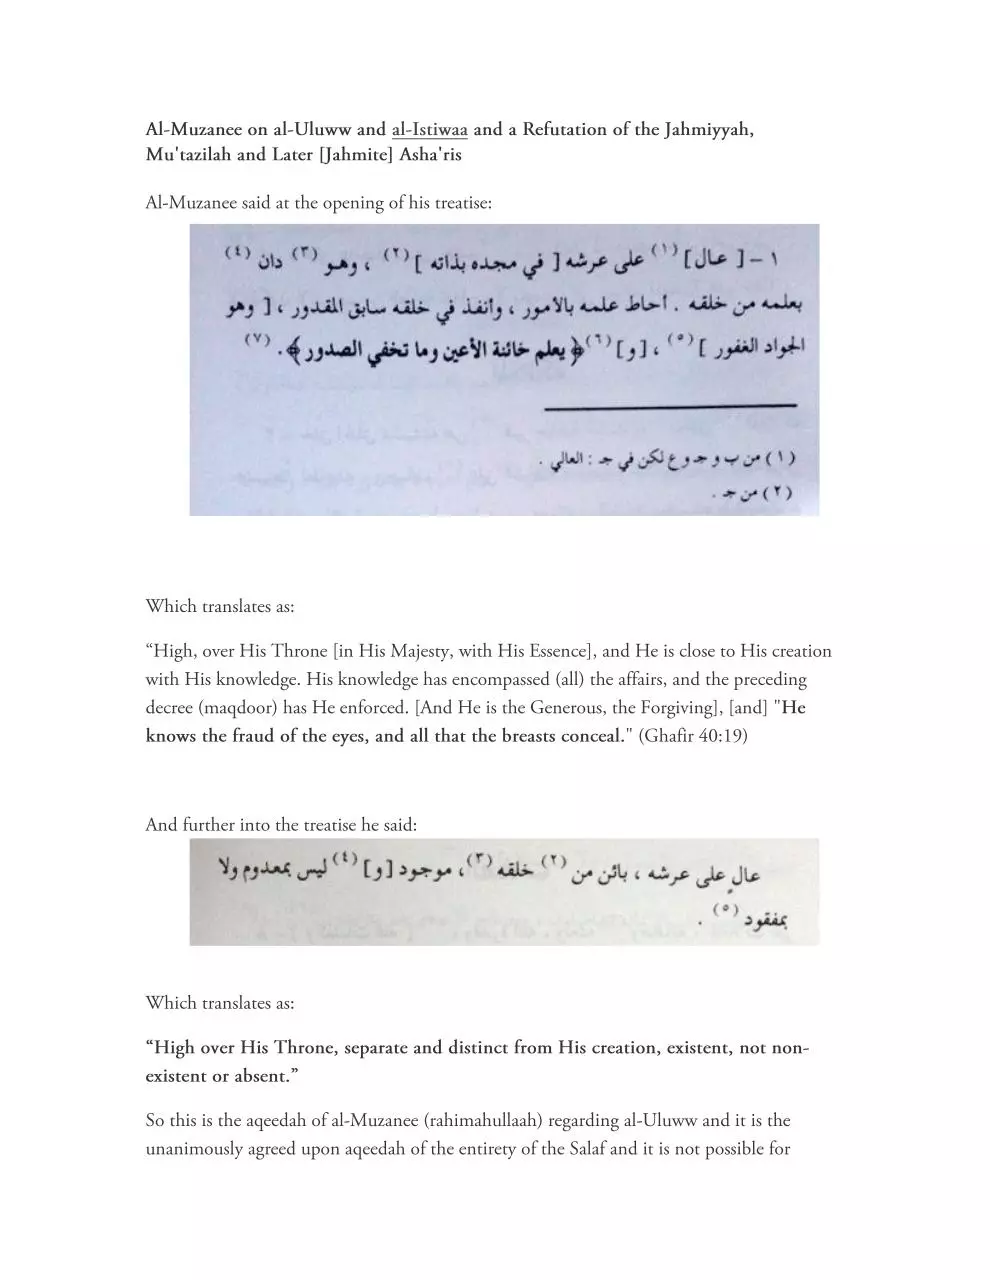 Al-Muzanee on al-Uluww and al-Istiwaa and a Refutation of the Jahmiyyah,
Mu'tazilah and Later [Jahmite] Asha'ris
Al-Muzanee said at the opening of his treatise:
١ – [ عال ] (١) على عرشه [ في مجده بذاته ] (٢) ، وهو (٣) دان (٤)
بعلمه من خلقه . أحاط علمه بالأمور ، وأنفذ في خلقه سابق المقدور ، [ وهو
الجواد الغفور ] (٥) ، [ و ] (٦) ﴿ يعلم خائنة الأعين وما تخفي الصدور ﴾ . (٧)
(١) من ب و جـ و ع لكن في جـ : العالي .
(٢) من جـ .
Which translates as:
“High, over His Throne [in His Majesty, with His Essence], and He is close to His creation
with His knowledge. His knowledge has encompassed (all) the affairs, and the preceding
decree (maqdoor) has He enforced. [And He is the Generous, the Forgiving], [and] "He
knows the fraud of the eyes, and all that the breasts conceal." (Ghafir 40:19)
And further into the treatise he said:
عالٍ على عرشه ، بائن من (٢) خلقه (٣) ، موجود [ و ] (٤) ليس بمعدوم ولا
بمفقود (٥) .
Which translates as:
“High over His Throne, separate and distinct from His creation, existent, not non-
existent or absent.”
So this is the aqeedah of al-Muzanee (rahimahullaah) regarding al-Uluww and it is the
unanimously agreed upon aqeedah of the entirety of the Salaf and it is not possible for